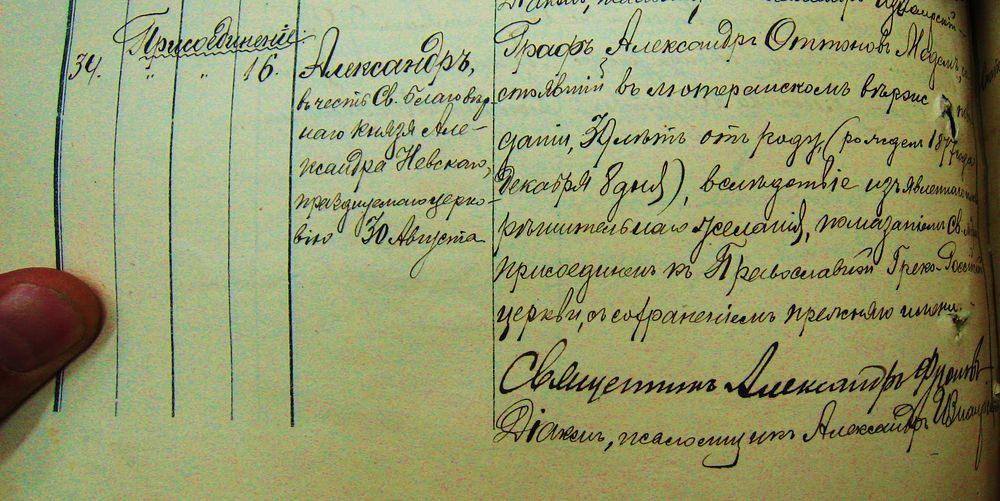 Присоединеніе
34. " " 16.
Александръ,
въ честь Св. Благовѣр-
наго Князя Але-
ксандра Невскаго,
празднуемаго церко-
вію 30 Августа
Графъ Александръ Оттоновъ Медемъ, со-
стоявшій въ лютеранскомъ вѣроис
даніи, лѣтъ отъ роду (рожден 187 года
Декабря 8 дня), вслѣдствіе изъявленнаго
рѣшительнаго желанія, помазаніемъ Св.
присоединенъ къ Православной Греко-Россій
церкви, съ сохраненіемъ прежняго имени.
Священникъ Александръ
Діаконъ, псаломщикъ Александръ